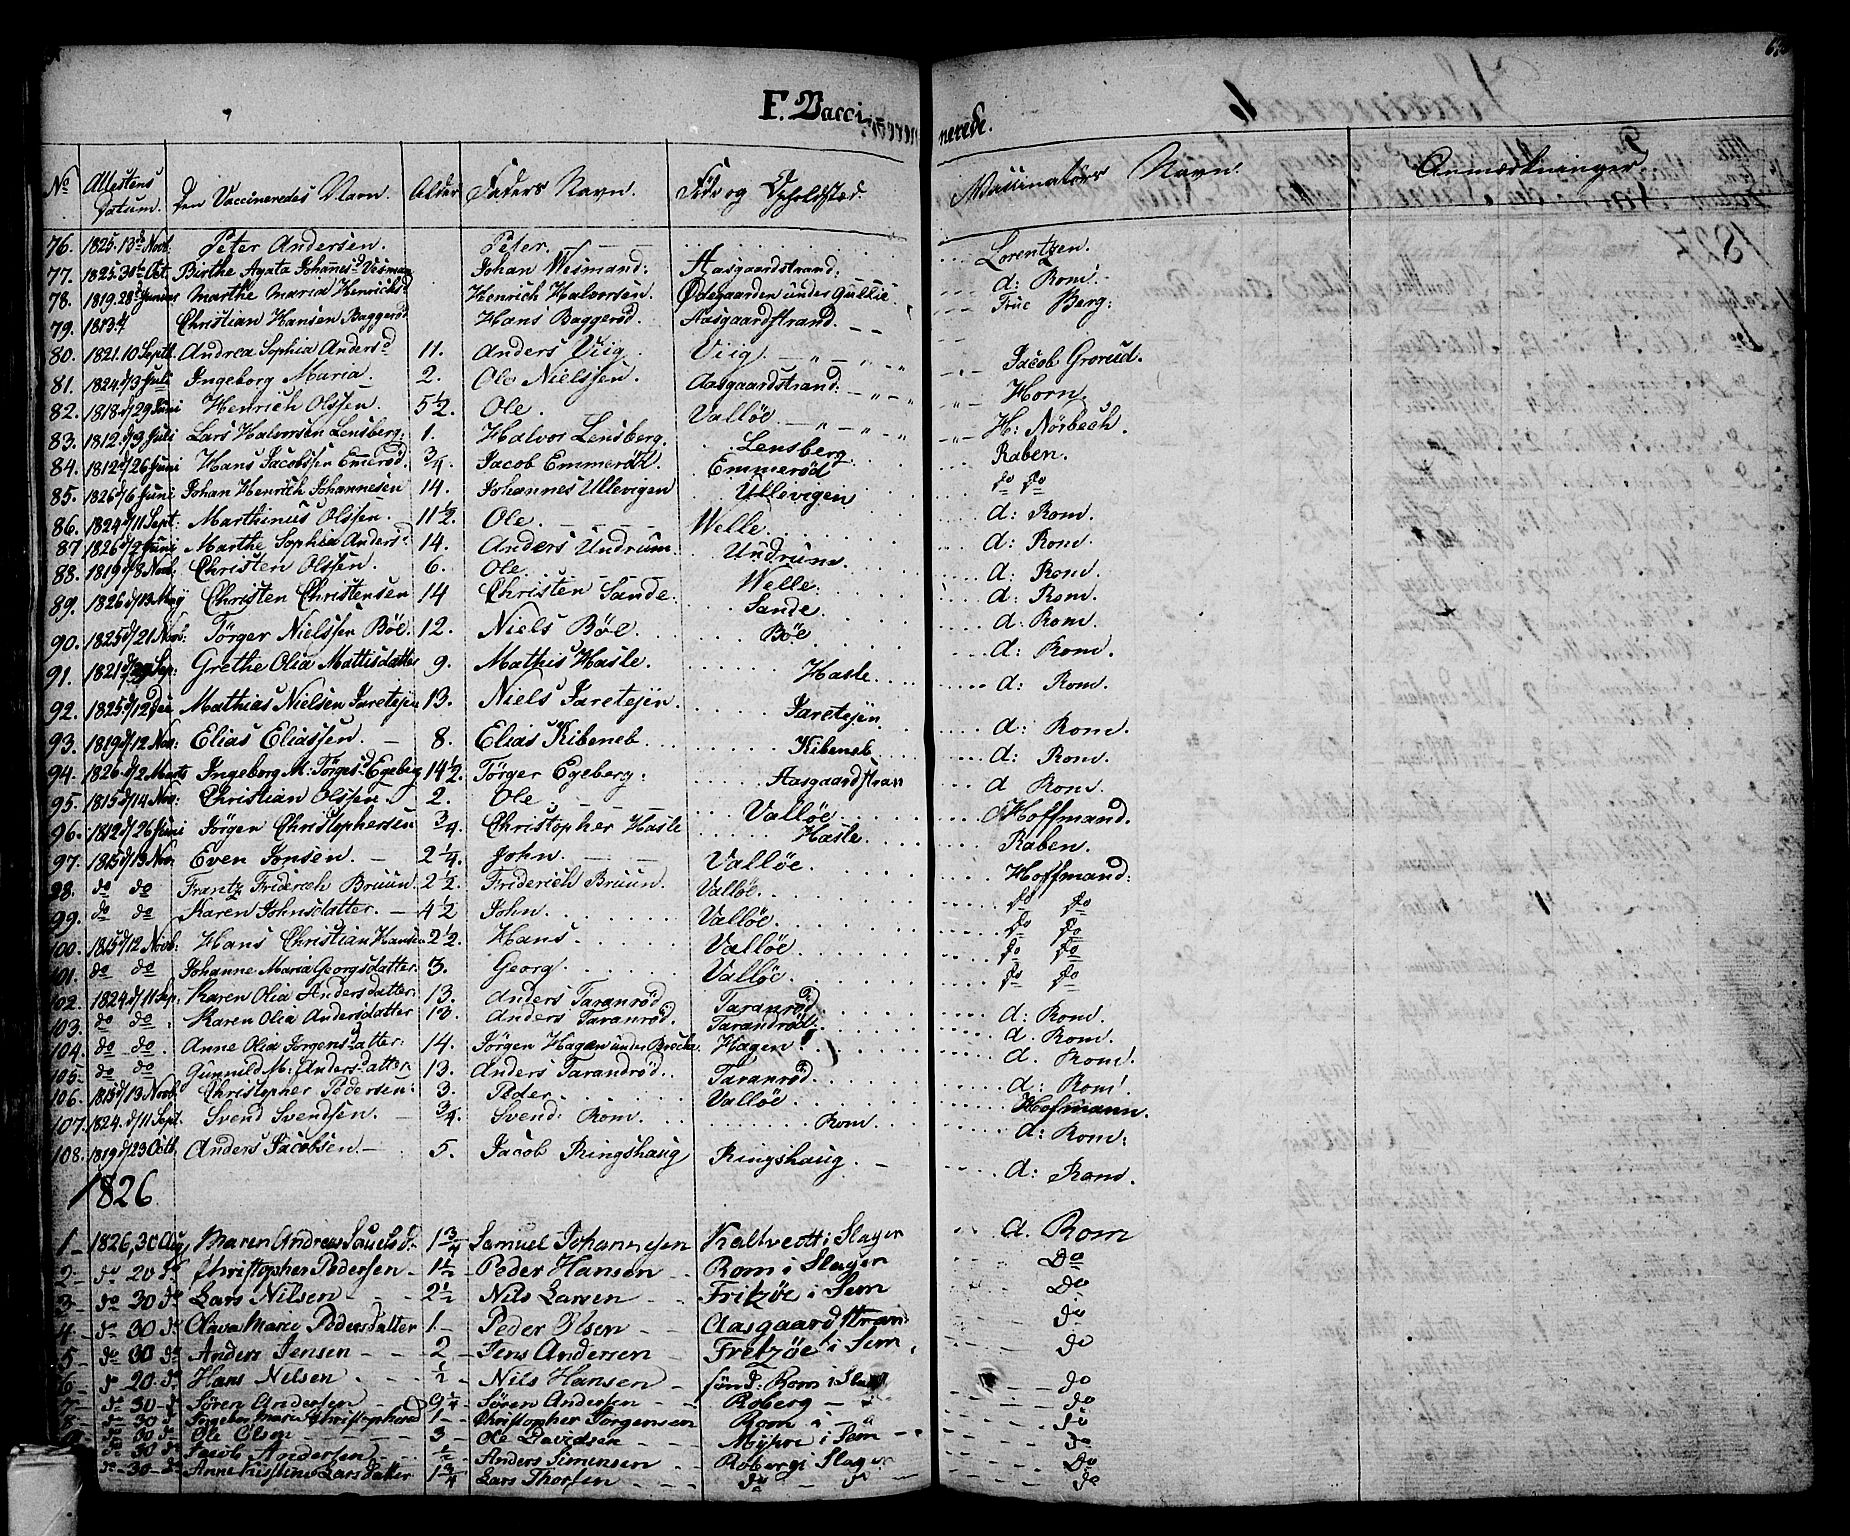 F. Vaccinerede.
No Attestens Datum. Den Vaccineredes Navn. Alder Faders Navn. Føde og Opholdsted. Vaccinatørs Navn. Anmærkninger.
76. 1825. 13de Novb. Peter Andersen. Peter. Lorentzen.
77. 1825. 30te Oct. Birthe Agata Johannesd Vesman Johan Wesmand: Aasgaardstrand. d: Rom.
78. 1819. 28de Junius Marthe Maria Henrichsd Henrich Halvorsen. Ødegaarden under Gullie. Frue Berg:
79. 1813. Christian Hansen Baggerød Hans Baggerød. Aasgaardstrand.
80. 1821. 10 Septb. Andrea Sophia Andersd 11. Anders Viig. Viig. Jacob Grorud.
81. 1824 d/3 Juli Ingeborg Maria. 2. Ole Nielssen. Aasgaardstrand. Horn.
82. 1818. d/29 Juni Henrich Olssen. 5½. Ole. Valløe. H: Nørbech.
83. 1812. d/9 Juli Lars Halvorsen Lensberg. 1. Halvor Lensberg. Lensberg. Raben.
84. 1812 d/26 Juni Hans Jacobssen Emerød. ¾. Jacob Emmerød. Emmerød do do
85. 1826 d/6 Juni Johan Henrich Johannesen 14. Johannes Ullevigen Ullevigen d: Rom.
86. 1824 d/11 Sept: Marthinus Olssen. 11½. Ole. Welle. d: Rom.
87 1826 d/2 Juni Marthe Sophia Andersd 14. Anders Undrum. Undrum. d: Rom.
88. 1819 d/8 Novb: Christen Olssen. 6. Ole. Welle. d: Rom.
89. 1826 d/13 May Christen Christensen 14 Christen Sande. Sande. d: Rom.
90. 1825 d/21 Novb. Tørger Nielssen Bøe. 12. Niels Bøe. Bøe d: Rom.
91. 1821 d/29 Sep: Grethe Olia Mattisdatter 9. Mathis Hasle. Hasle. d: Rom.
92. 1825 d/12 Dec Mathias Nielsen Jaretejen 13. Niels Jaretejen. Jaretejen d: Rom.
93. 1819 d/12 Nov: Elias Eliassen. 8. Elias Kibeneb. Kibeneb. d: Rom.
94. 1826 d/2 Marts Ingeborg M: Tørgesd Egeberg 14½. Tørger Egeberg: Aasgaardstran d Rom.
95. 1815 d/14 Nov: Christian Olssen. 2. Ole Valløe. Hoffmand.
96. 1812 d/26 Juni Jørgen Christophersen ¾. Christopher Hasle Hasle. Raben.
97. 1815 d/13 Nov. Even Jonsen. 2¼. John. Valløe. Hoffmand:
98. do do Frantz Friderich Bruun. 2½. Friderich Bruun. Valløe. do do
99. do do Karen Johnsdatter. 4½ John. Valløe. do do
100. 1815 d/12 Novb: Hans Christian Hansen 2½. Hans. Valløe do do
101. do do Johanne Maria Georgsdatter. 3. Georg. Valløe. do do
102. 1824 d/11 Sep: Karen Olia Andersdatter. 13. Anders Taranrød. Taranrød. d: Rom.
103. do do Karen Olia Andersdatter 13. Anders Taranrød. Tarandrød. d. Rom.
104. do do Anne Olia Jørgensdatter. 14. Jørgen Hagen under Brecke. Hagen. d. Rom.
105. do do Gunnild M: Andersdatter 13. Anders Tarandrød. Taranrød. d: Rom.
106. 1815 d/13 Novb. Christopher Pedersen. 3. Peder. Valløe. Hofmann.
107. 1824. d/11 Sept. Svend Svendsen. ¾. Svend: Rom. Rom. d: Rom.
108. 1819 d/23 Octb. Anders Jacobsen. 5. Jacob Ringshaug Ringshaug. d: Rom.
1826
1 1826, 30 Aug Maren Andrea Sauelsd. 1¾ Samuel Johannesen Kaltvedt i Slagen d. Rom
2 do 20 do Christopher Pedersen 1½ Peder Hansen Rom i Slagen Do
3 do 30 do Lars Nilsen 2½ Nils Larsen Fritzøe i Sem do
4 do 30 do Olava Marie Pedersdatter 1 Peder Olsen Aasgaardstran do
5 do 30 do Anders Jensen 2 Jens Andersen Fretzøe i Sem do
6 do 20 do Hans Nilsen ½ Nils Hansen sønd: Rom i Slag do
7 do 30 do Søren Andersen 9¼ Søren Andersen Roberg do
8 do 30 do Ingebor Marie Christophersd 1 Christopher Jørgensen Rom i do
9 do 30 do Ole Olsen 3 Ole Davidsen i Sem do
do 30 do Jacob Andersen ½ Anders Simensen Roberg i Slagen Do
do 30 do Anne Kistine Larsdatter 1¾ Lars Thorsen do do do
1827